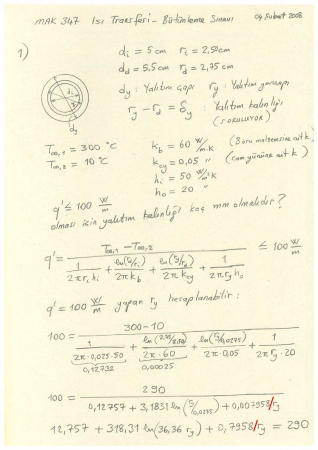 MAK 347 Isı Transferi - Bütünleme Sınavı 04 Şubat 2008
1)
di = 5 cm ri = 2,50 cm
dd = 5,5 cm rd = 2,75 cm
dy : Yalıtım çapı ry : Yalıtım yarıçapı
ry - rd = δy : Yalıtım kalınlığı
(SORULUYOR)
di
dy
T∞,1 = 300 °C
T∞,2 = 10 °C
kb = 60 W/m.K (Boru malzemesine ait k)
kcy = 0,05 " (cam yününe ait k)
hi = 50 W/m²K
ho = 20 "
q' ≤ 100 W/m
olması için yalıtım kalınlığı kaç mm olmalıdır?
q' = (T∞,1 - T∞,2) / (1/(2πri hi) + ln(rd/ri)/(2πkb) + ln(ry/rd)/(2πkcy) + 1/(2πry ho)) ≤ 100 W/m
q' = 100 W/m yapan ry hesaplanabilir :
100 = (300 - 10) / (1/(2π·0,025·50) + ln(2,75/2,50)/(2π·60) + ln(ry/0,0275)/(2π·0,05) + 1/(2πry·20))
0,12732 0,00025
100 = 290 / (0,12757 + 3,1831 ln(ry/0,0275) + 0,007958/ry)
12,757 + 318,31 ln(36,36 ry) + 0,7958/ry = 290